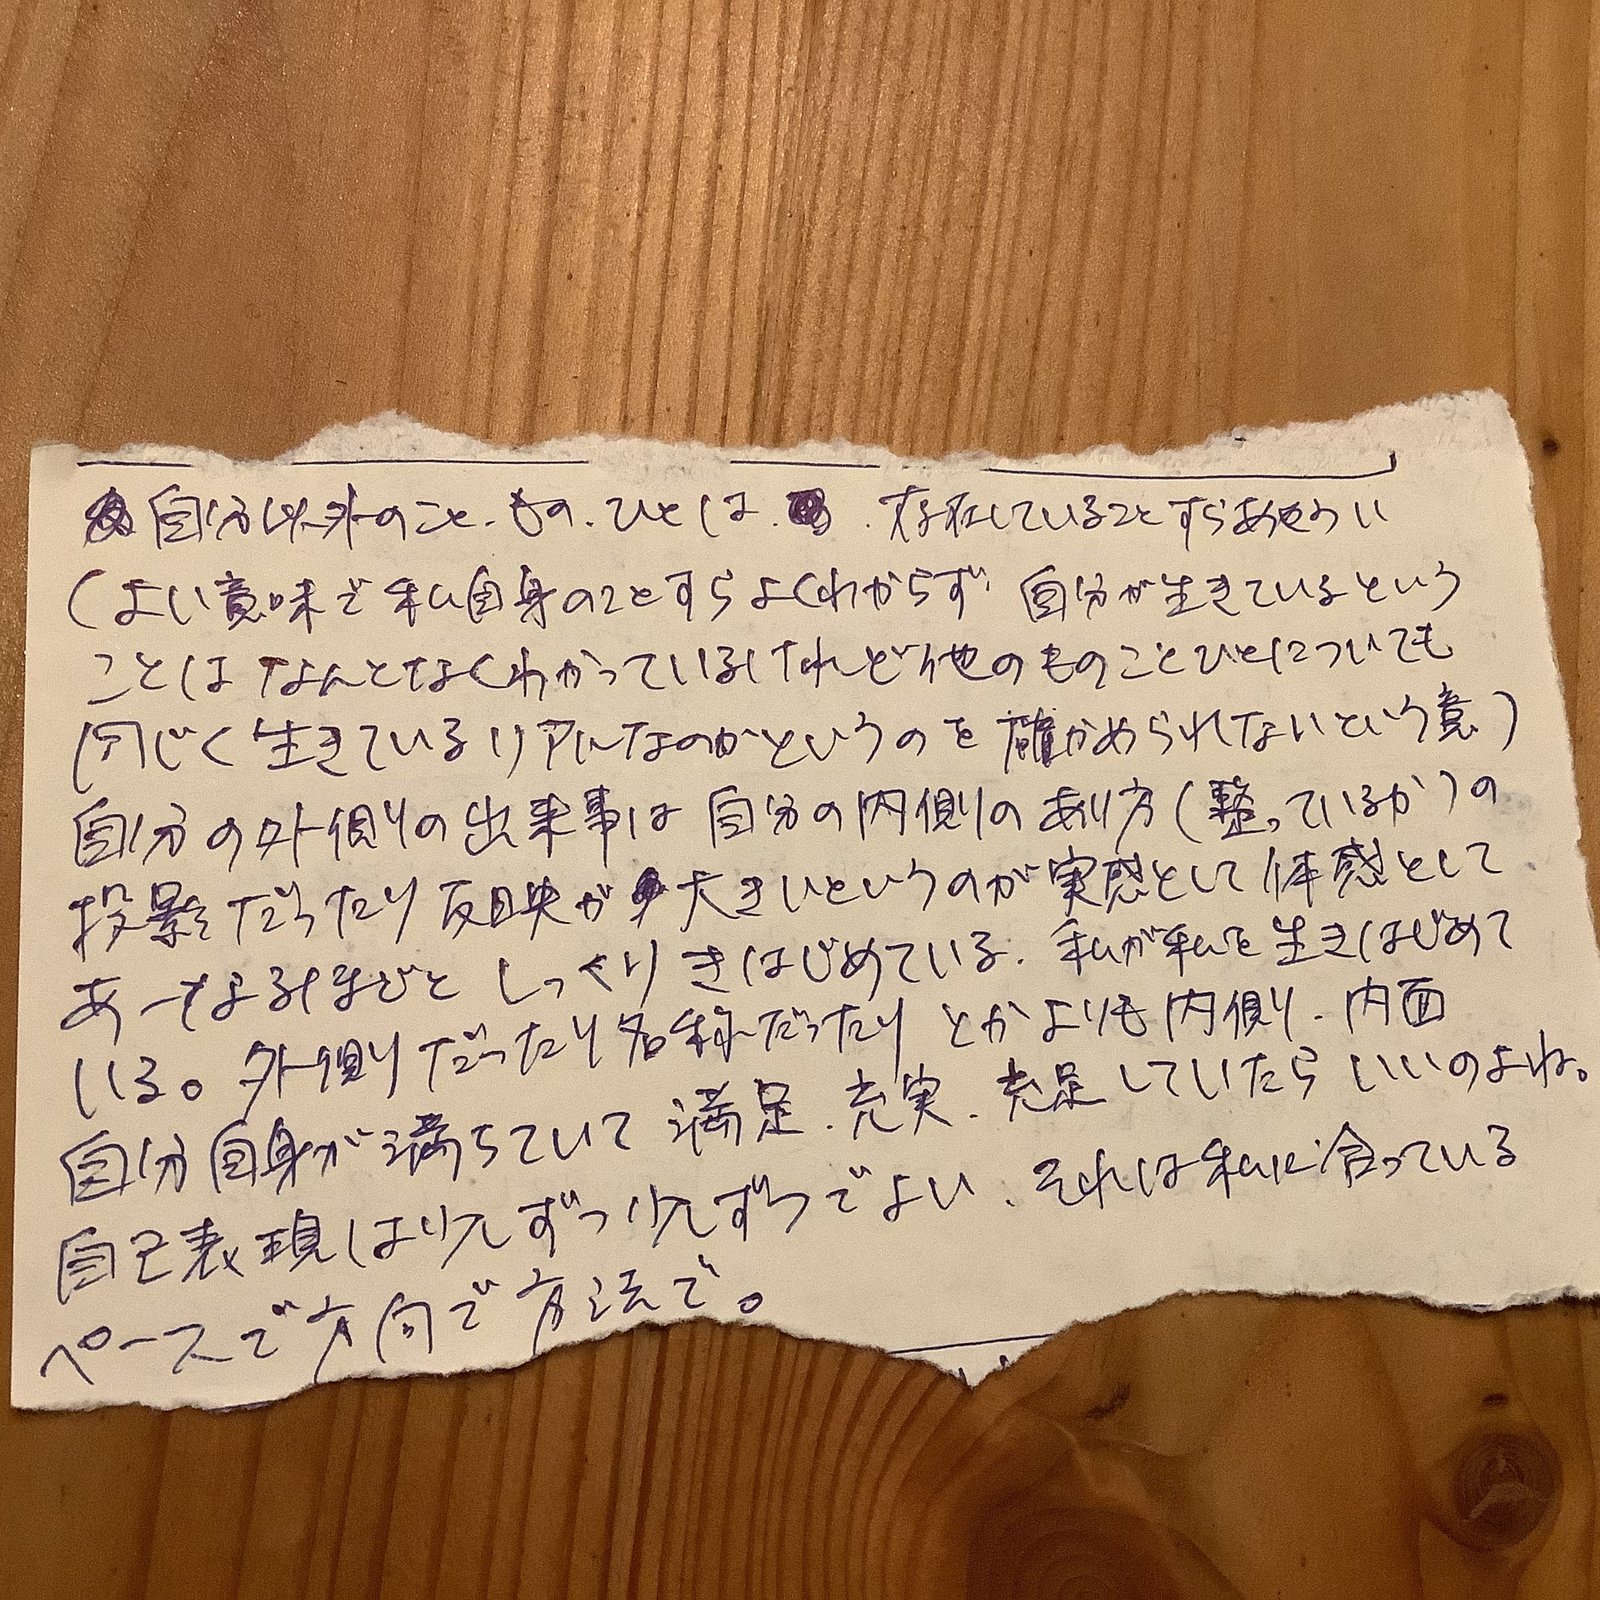 自分以外のこと、もの、ひとは、存在していることすらあやうい
(よい意味で私自身のことすらよくわからず 自分が生きているという
ことはなんとなくわかっているけれど他のものことひとについても
同じく生きているリアルなのかというのを確かめられないという意)
自分の外側の出来事は自分の内側のあり方(整っているか)の
投影だったり反映が大きいというのが実感として体感として
あーなるほどと しっくりきはじめている。私が私を生きはじめて
いる。外側だったり名称だったり とかよりも内側、内面
自分自身が満ちていて 満足、充実、充足していたらいいのよね。
自己表現は少しずつ少しずつでよい、それは私に合っている
ペースで方向で方法で。